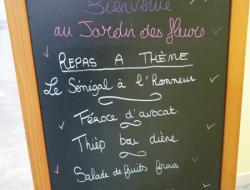 Bienvenue
au Jardin des fleurs
REPAS A THÈME
Le Sénégal à l'Honneur
Féroce d'avocat
Thiép bou diène
Salade de fruits frais